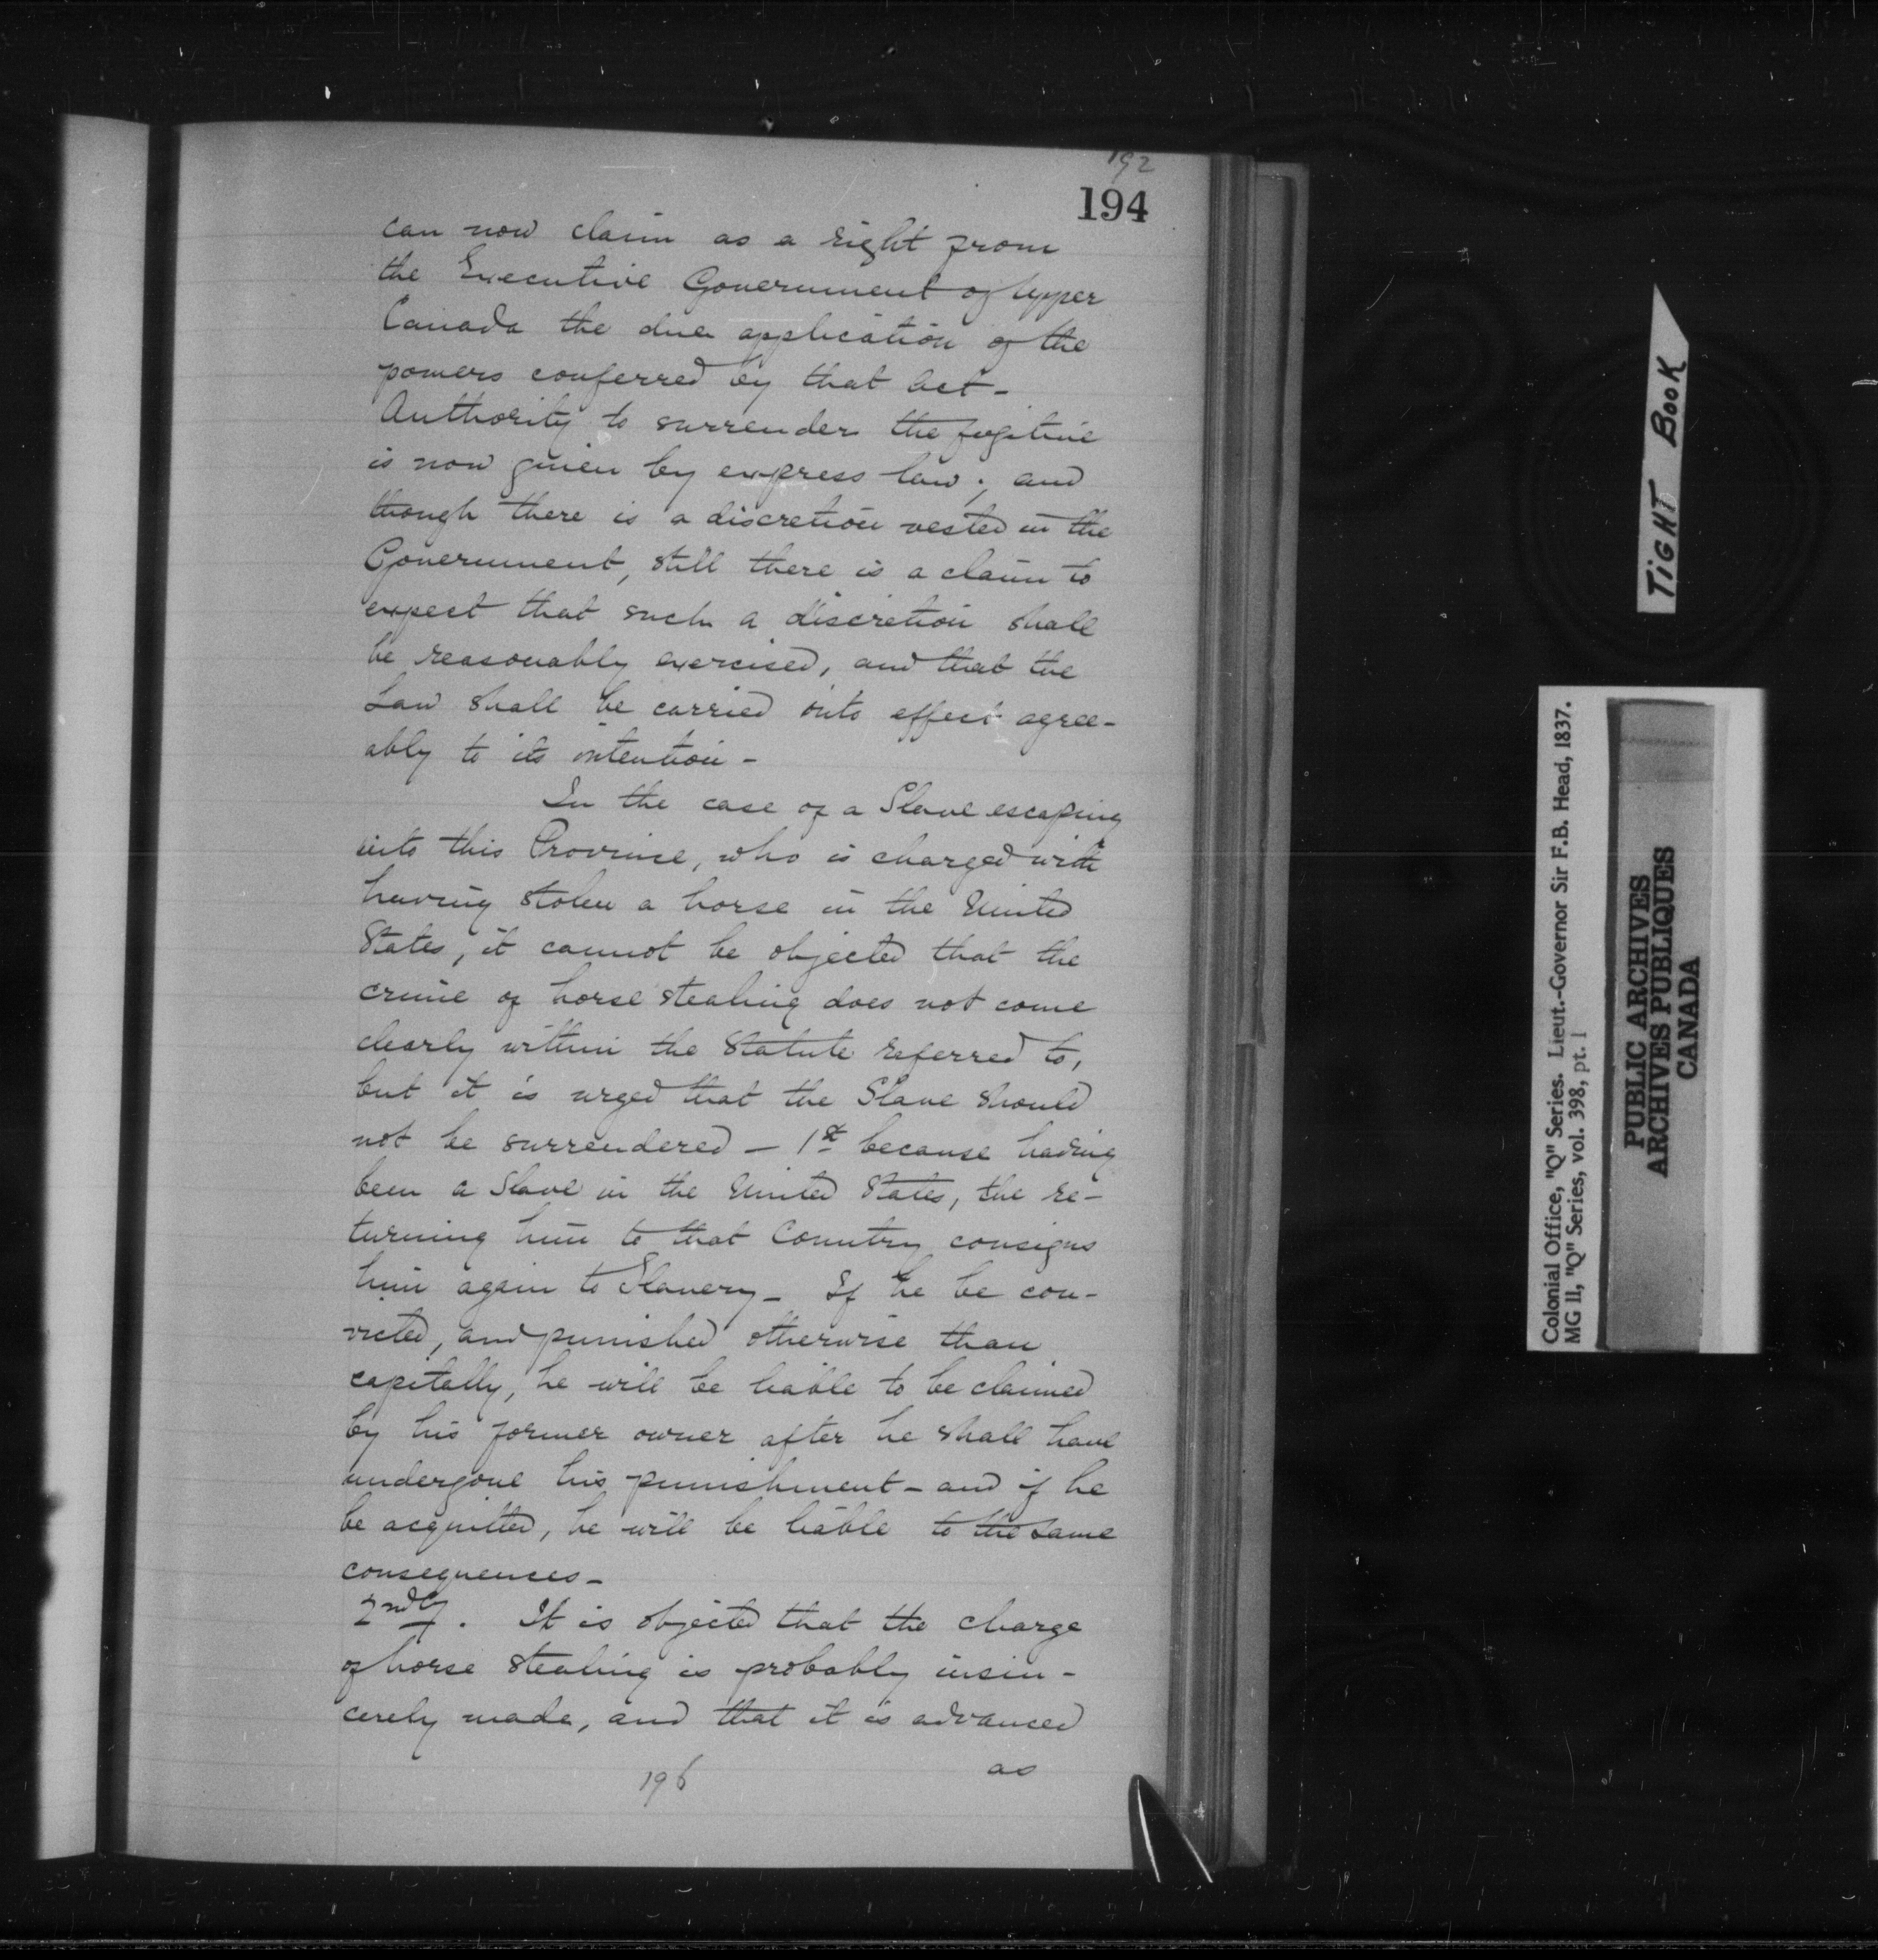 192
194
can now claim as a right from
the Executive Government of Upper
Canada the due application of the
powers conferred by that act -
Authority to surrender the fugitive
is now given by express law; and
though there is a discretion vested in the
Government, still there is a claim to
expect that such a discretion shall
be reasonably exercised, and that the
Law shall be carried into effect agree-
ably to its intention -
In the case of a Slave escaping
into this Province, who is charged with
having stolen a horse in the United
States, it cannot be objected that the
crime of horse stealing does not come
clearly within the Statute referred to,
but it is urged that the Slave should
not be surrendered - 1st because having
been a Slave in the United States, the re-
turning him to that Country consigns
him again to Slavery - If he be con-
victed, and punished otherwise than
capitally, he will be liable to be claimed
by his former owner after he shall have
undergone his punishment - and if he
be acquitted, he will be liable to the same
consequences -
2ndly. It is objected that the charge
of horse stealing is probably insin-
cerely made, and that it is advanced
as
196
TIGHT BOOK
Colonial Office, "Q" Series. Lieut.-Governor Sir F.B. Head, 1837.
MG 11, "Q" Series, vol. 398, pt. 1
PUBLIC ARCHIVES
ARCHIVES PUBLIQUES
CANADA